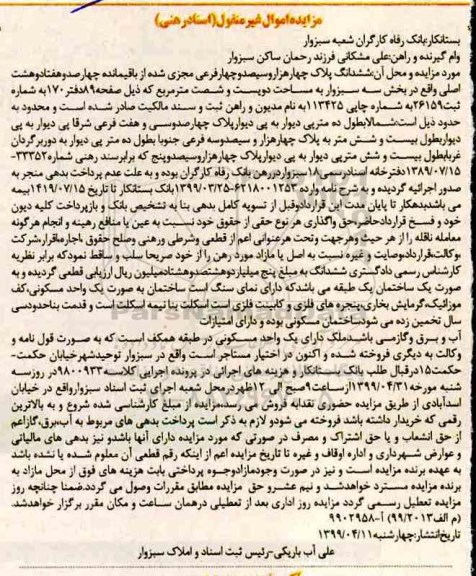 مزایده اموال غیر منقول (اسناد رهنی)
بستانکار:بانک رفاه کارگران شعبه سبزوار
وام گیرنده و راهن:علی مشکانی فرزند رحمان ساکن سبزوار
مورد مزایده و محل آن:ششدانگ پلاک چهارهزاروسیصدوچهارفرعی مجزی شده از باقیمانده چهارصدوهفتادوهشت
اصلی واقع در بخش سه سبزوار به مساحت دویست و شصت مترمربع که ذیل صفحه۸۹دفتر۱۷۰به شماره
ثبت۲۶۱۵۹به شماره چاپی ۱۱۳۴۲۵به نام مدیون و راهن ثبت و سند مالکیت صادر شده است و محدود به
حدود ذیل است:شمالابطول ده مترپی دیوار به پی دیوارپلاک چهارصدوسی و هفت فرعی شرقا پی دیوار به پی
دیواربطول بیست و شش متر به پلاک چهارهزار و سیصدوسه فرعی جنوبا بطول ده متر پی دیوار به دوربرگردان
غربابطول بیست و شش مترپی دیوار به پی دیوارپلاک چهارهزاروسیصدوپنج که برابرسند رهنی شماره۳۳۳۵۲-
۱۳۸۹/۰۷/۱۵دفترخانه اسنادرسمی۱۸سبزواردررهن بانک رفاه کارگران بوده و به علت عدم پرداخت بدهی منجر به
صدور اجرائیه گردیده و به شرح نامه وارده ۶۲۱۸۰۰۱۲۵۳-۱۳۹۹/۰۳/۲۵بانک بستانکار تا تاریخ ۱۴۱۹/۰۷/۱۵بیمه
می باشدبدهکار تا پایان مدت این قراردادوقبل از تسویه کامل بدهی بنا به تشخیص بانک و بازپرداخت کلیه دیون
خود و فسخ قراردادحاضرحق واگذاری هر نوع حقی از حقوق خود نسبت به عین یا منافع رهینه و انجام هرگونه
معامله ناقله را از هر حیث وهرجهت وتحت هرعنوانی اعم از قطعی وشرطی ورهنی وصلح حقوق ،اجاره،اقرار،شرکت
،وکالت،قرارداد،وصایت و غیره نسبت به اصل یا مازاد مورد رهن را از خود صریحا سلب و ساقط نمودکه برابر نظریه
کارشناس رسمی دادگستری ششدانگ به مبلغ پنج میلیاردوهشتصدوهشتادمیلیون ریال ارزیابی قطعی گردیده و به
صورت یک ساختمان یک طبقه می باشدکه دارای نمای سنگ است ساختمان به صورت یک واحد مسکونی،کف
موزائیک،گرمایش بخاری،پنجره های فلزی و کابینت فلزی است اسکلت بنا نیمه اسکلت است و قدمت بناحدودسی
سال تخمین زده می شودساختمان مسکونی بوده و دارای امتیازات
آب و برق وگازمی باشدملک دارای یک واحد مسکونی در طبقه همکف است که به صورت قول نامه و
وکالت به دیگری فروخته شده و اکنون در اختیار مستأجر است واقع در سبزوار توحیدشهرخیابان حکمت-
حکمت۱۵درقبال طلب بانک بستانکار و هزینه های اجرائی در پرونده اجرایی کلاسه۹۸۰۰۹۳۳در روزسه
شنبه مورخه۱۳۹۹/۰۴/۳۱ازساعت۹صبح الی ۱۲ظهردرمحل شعبه اجرای ثبت اسناد سبزوارواقع در خیابان
اسدآبادی از طریق مزایده حضوری نقدابه فروش می رسد،مزایده از مبلغ کارشناسی شده شروع و به بالاترین
رقمی که خریدار داشته باشد فروخته می شودو لازم به ذکر است پرداخت بدهی های مربوط به آب،برق،گازاعم
از حق انشعاب و یا حق اشتراک و مصرف در صورتی که مورد مزایده دارای آنها باشدو نیز بدهی های مالیاتی
و عوارض شهرداری و اداره اوقاف و غیره تا تاریخ مزایده اعم از اینکه رقم قطعی آن معلوم شده یا نشده باشد
به عهده برنده مزایده است و نیز در صورت وجودمازادوجوه پرداختی بابت هزینه های فوق از محل مازاد به
برنده مزایده مسترد خواهدشد و نیم عشرو حق مزایده مطابق مقررات وصول می گردد.ضمنا چنانچه روز
مزایده تعطیل رسمی گردد مزایده روز اداری بعد از تعطیلی درهمان ساعت و مکان مقرر برگزار خواهدشد.
(م الف۹۹/۲۰۱۳) آ-۹۹۰۲۹۵۸
تاریخ انتشار:چهارشنبه۱۳۹۹/۰۴/۱۱
علی آب باریکی-رئیس ثبت اسناد و املاک سبزوار